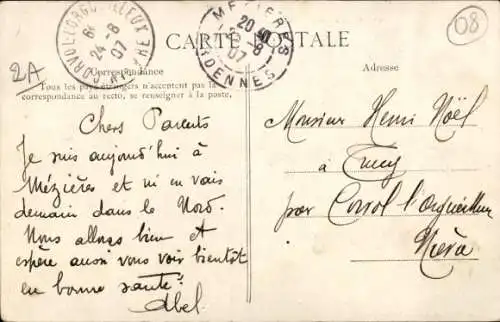 CORVOL-L'ORGUEILLEUX NIÈVRE
24 -8
07
MEZIERES
20
-8
07
ARDENNES
08
CARTE POSTALE
2A
Correspondance
Adresse
Tous les pays étrangers n'acceptent pas la
correspondance au recto, se renseigner à la poste.
Chers Parents
Je suis aujourd'hui à
Mézières et m'en vais
demain dans le Nord.
Nous allons bien et
espère aussi vous voir bientôt
en bonne santé.
Abel
Monsieur Henri Noël
à
par Corvol l'Orgueilleux
Nièvre